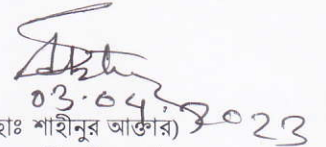 03.04.2023
হাঃ শাহীনুর আক্তার)